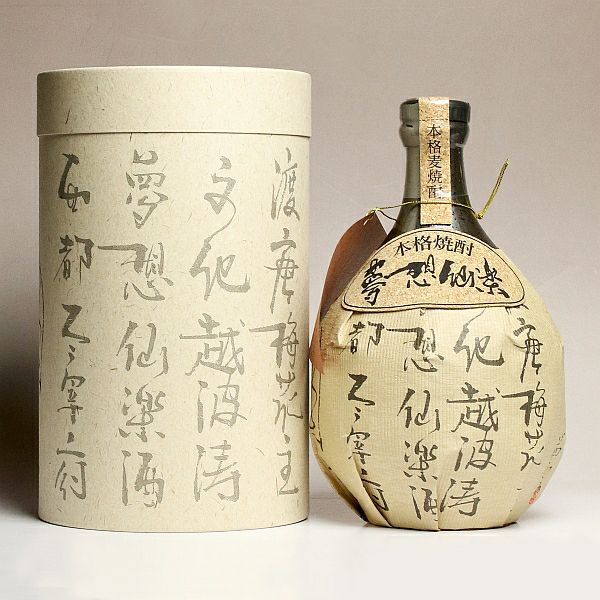 渡唐梅花主
文化越波涛
夢想仙樂酒
西都太宰府
本格麦焼酎
本格焼酎
夢想仙楽
唐梅花
化越波涛
想仙樂酒
都太宰府